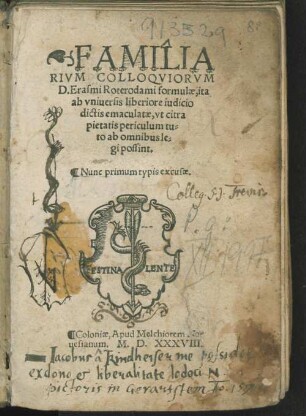 913529
8°
FAMILIA
RIVM COLLOQVIORVM
D. Erasmi Roterodami formulæ, ita
ab vniuersis liberiore iudicio
dictis emaculatæ, vt citra
pietatis periculum tu-
to ab omnibus le-
gi possint.
¶ Nunc primum typis excusæ.
Colleg. S.J.
FESTINA LENTE
¶ Coloniæ, Apud Melchiorem
uesianum. M. D. XXXVIII.
Jacobus à me
ex dono, et liberalitate Jodoci N
pictoris in